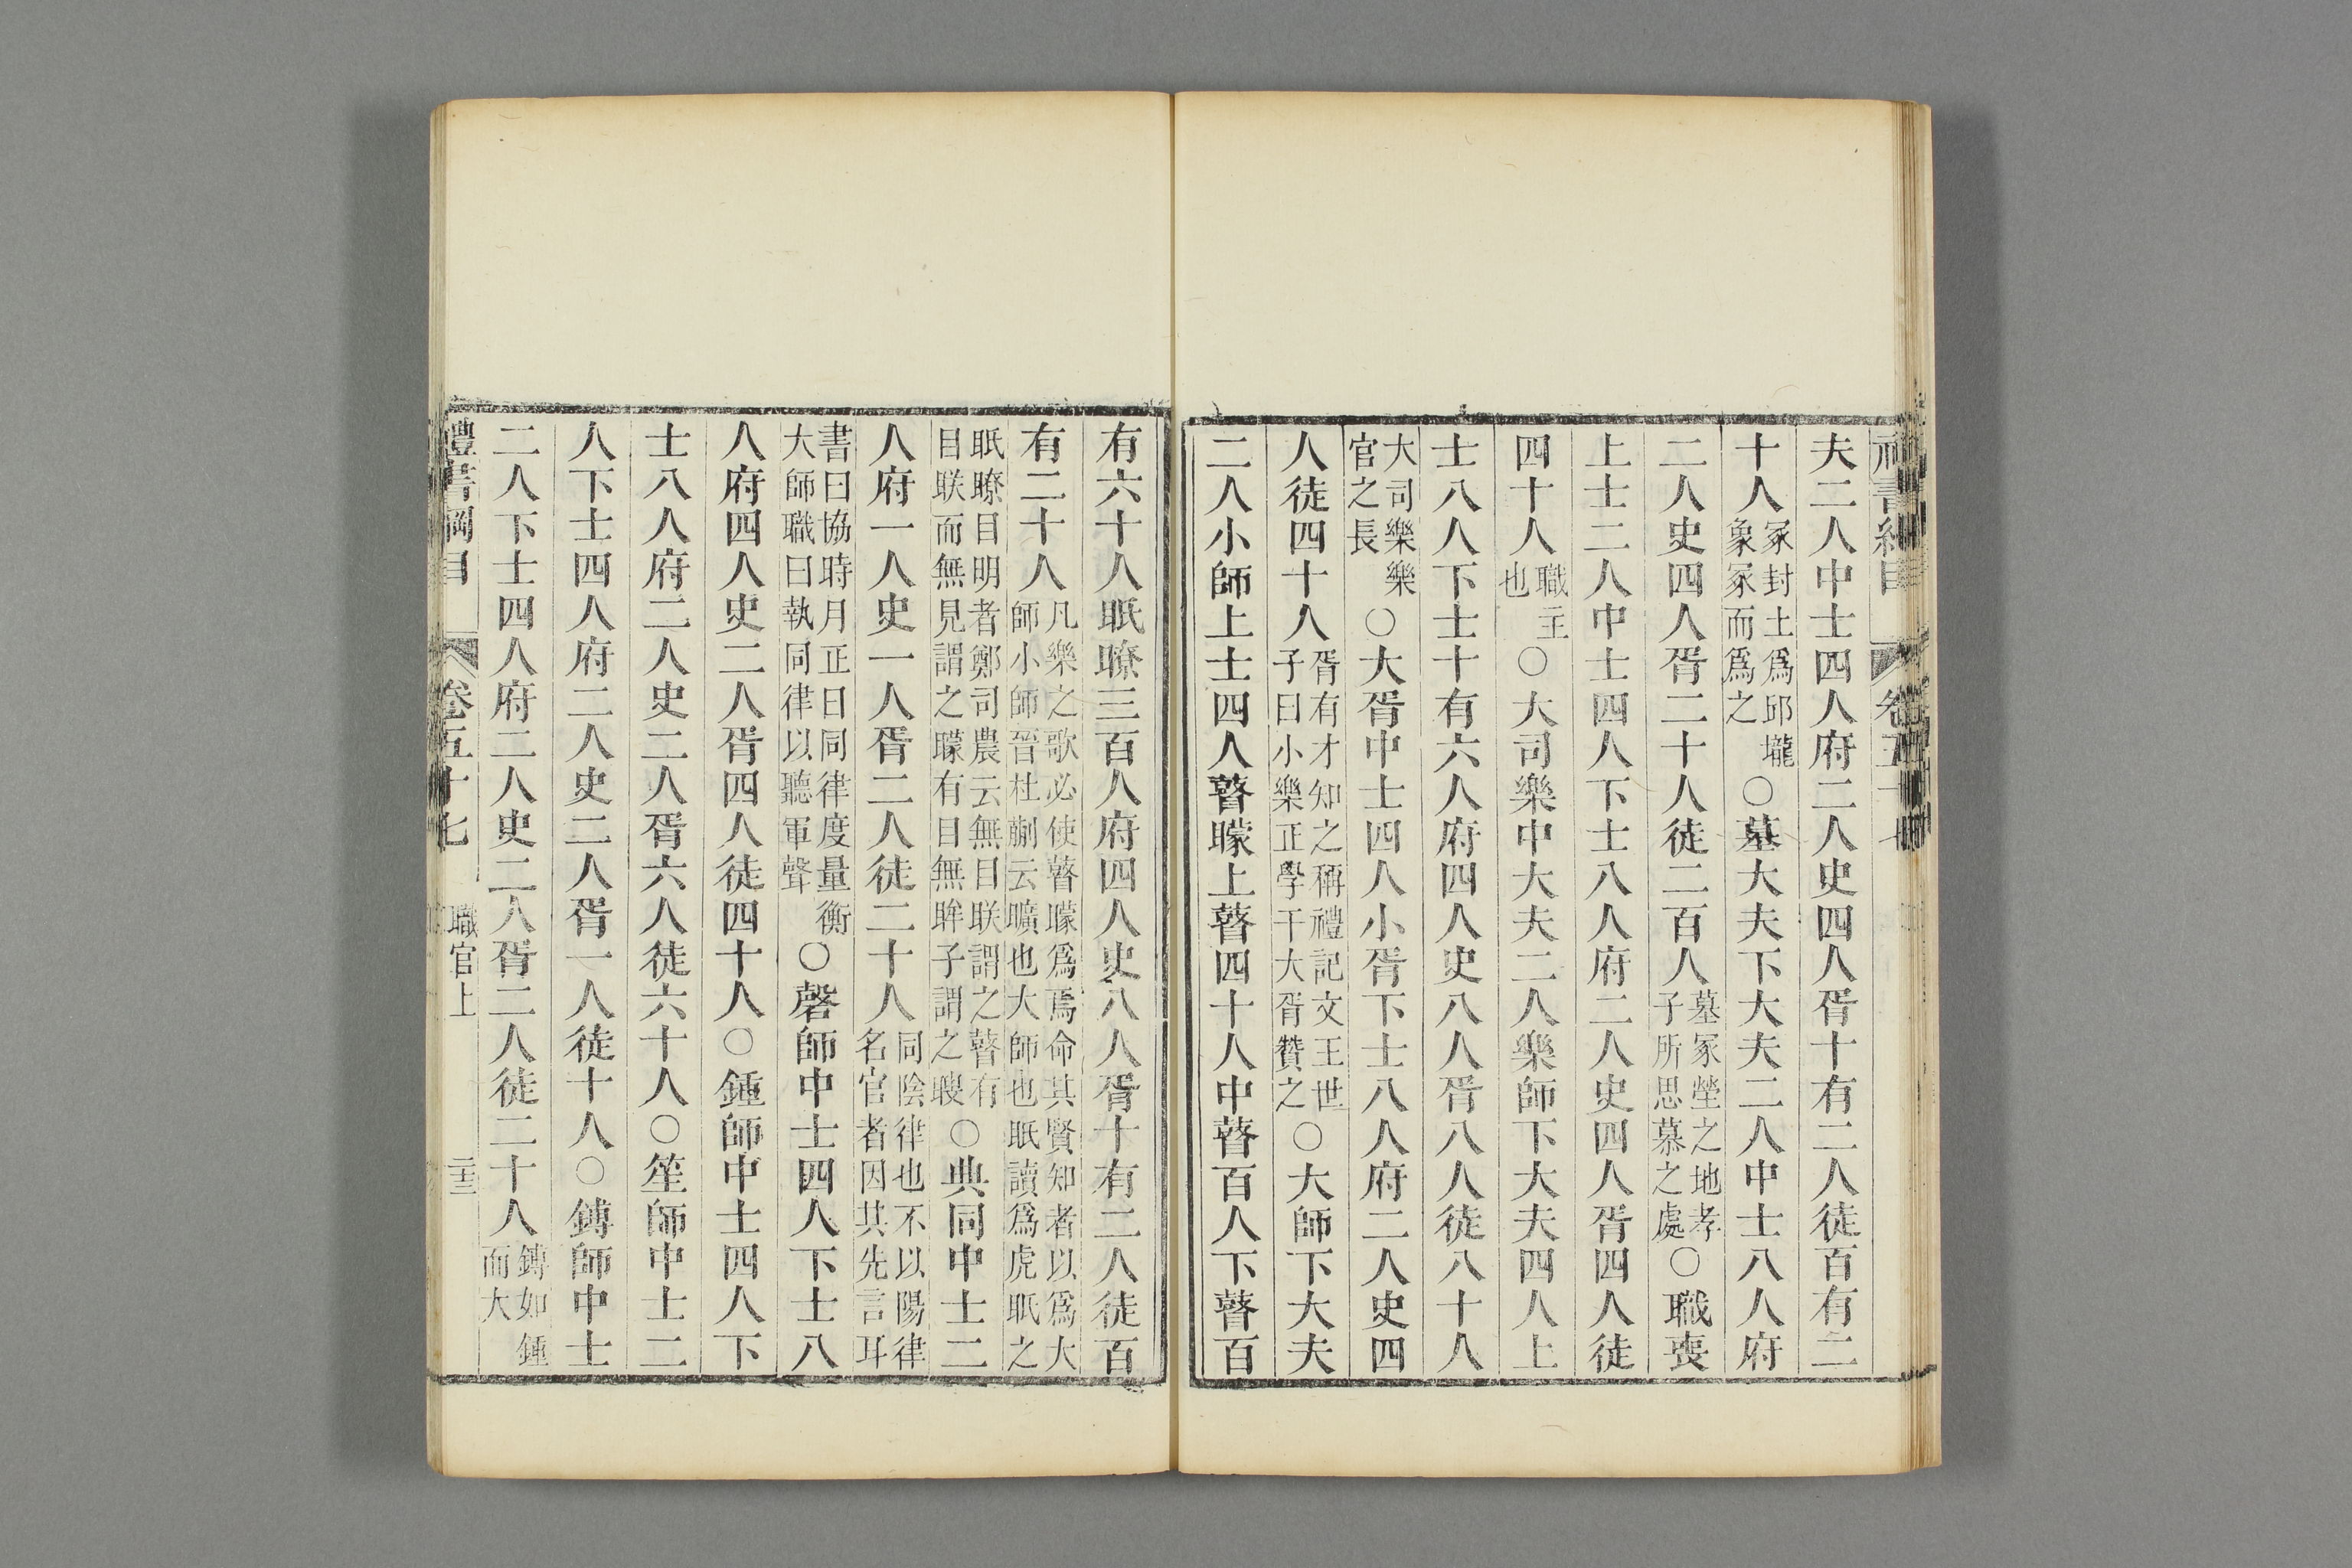 夫二人中士四人府二人史四人胥十有二人徒百有二
十人冢封土爲邱壠象冢而爲之○墓大夫下大夫二人中士八人府
二人史四人胥二十人徒二百人墓冢塋之地孝子所思慕之處○職喪
上士二人中士四人下士八人府二人史四人胥四人徒
四十人職主也○大司樂中大夫二人樂師下大夫四人上
士八人下士十有六人府四人史八人胥八人徒八十人
大司樂樂官之長○大胥中士四人小胥下士八人府二人史四
人徒四十人胥有才知之稱禮記文王世子曰小樂正學干大胥贊之○大師下大夫
二人小師上士四人瞽矇上瞽四十人中瞽百人下瞽百
有六十人眡瞭三百人府四人史八人胥十有二人徒百
有二十人凡樂之歌必使瞽矇爲焉命其賢知者以爲大師小師晉杜蒯云曠也大師也眡讀爲虎眡之
眡瞭目明者鄭司農云無目联謂之瞽有目联而無見謂之矇有目無眸子謂之瞍○典同中士二
人府一人史一人胥二人徒二十人同陰律也不以陽律名官者因其先言耳
書曰協時月正日同律度量衡大師職曰執同律以聽軍聲○磬師中士四人下士八
人府四人史二人胥四人徒四十人○鍾師中士四人下
士八人府二人史二人胥六人徒六十人○笙師中士二
人下士四人府二人史二人胥一人徒十人○鎛師中士
二人下士四人府二人史二人胥二人徒二十人鎛如鍾而大
禮書綱目 卷五十七 職官上 二十三